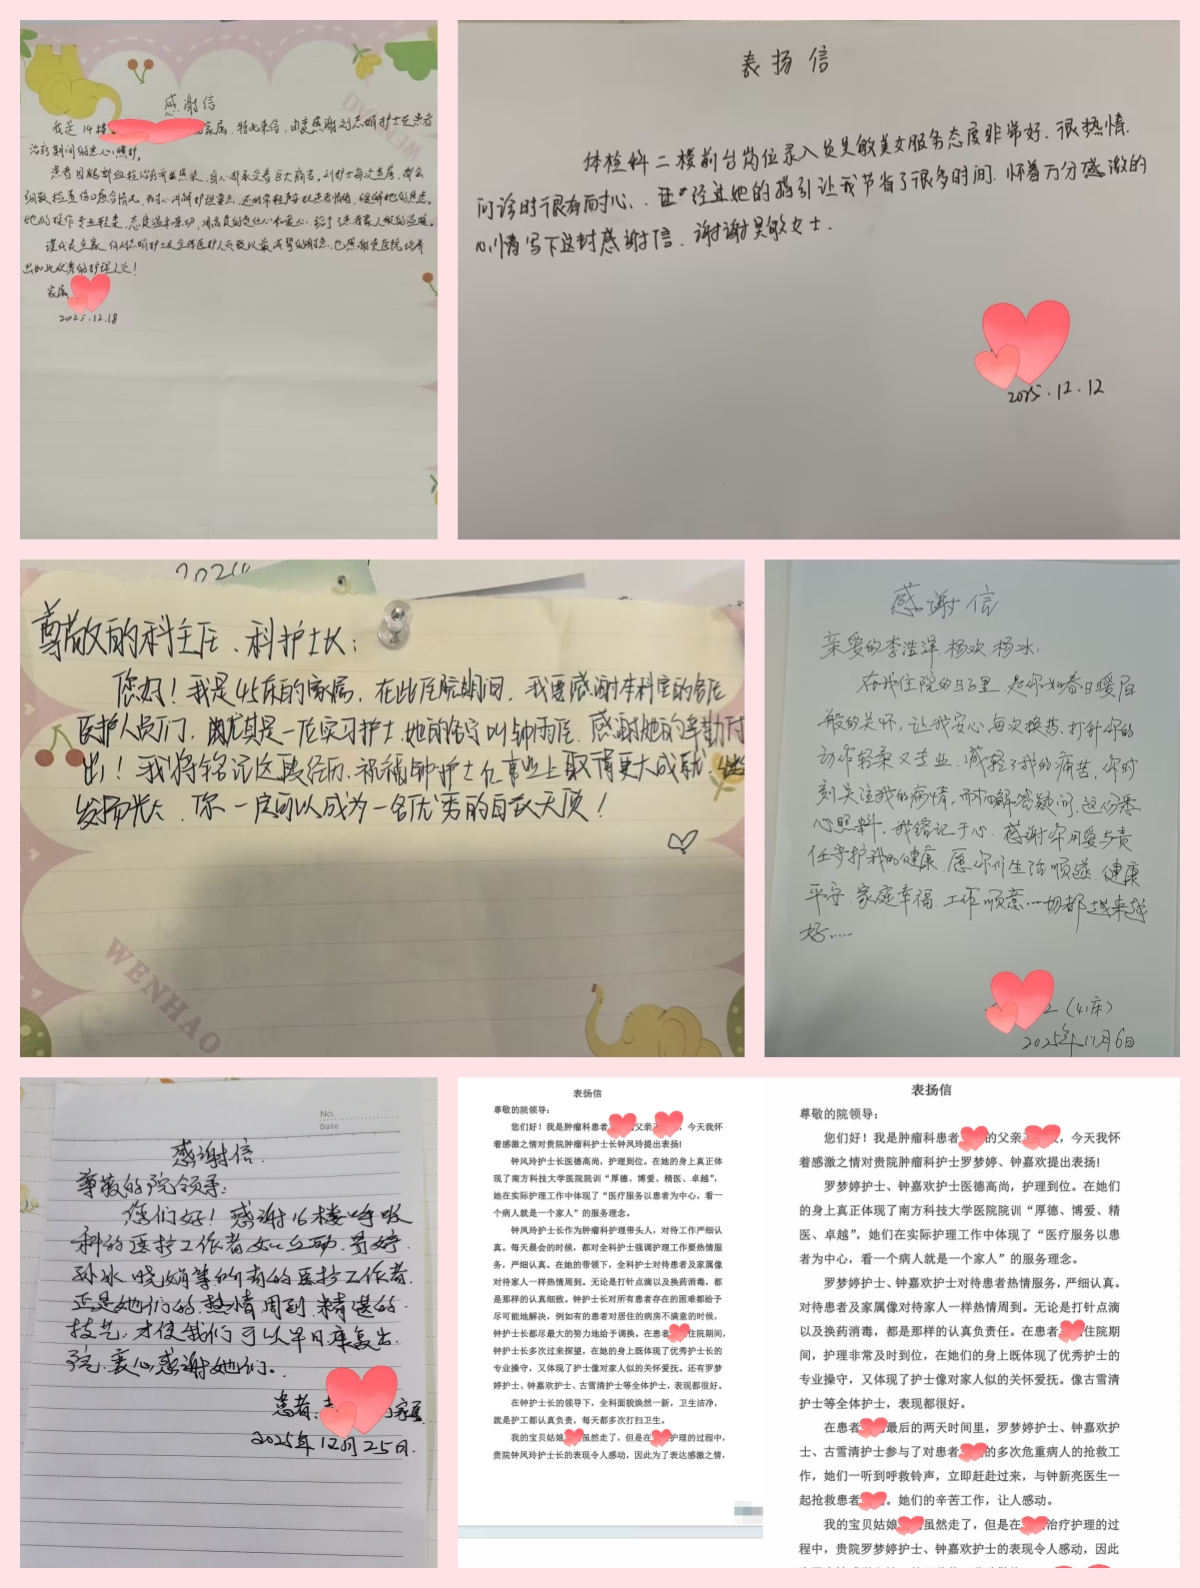 感谢信
我是14楼 家属,特此来信,由衷感谢刘志娟护士在患者
治疗期间的悉心照护。
患者因 ,身心都承受着巨大痛苦,刘护士每次查房,都会
细致检查伤口愈合情况,耐心讲解护理要点,还时常轻声安抚患者情绪,缓解她的焦虑。
她的操作专业轻柔,态度温和亲切,用高度的责任心和爱心,给了患者家人般的温暖。
谨代表全家,向刘志娟护士及全体医护人员致以最诚挚的谢意,也感谢贵医院培养
出如此优秀的护理人员!
家属
2025.12.18
WENHAO
表扬信
体检科二楼前台岗位录入员吴敏美女服务态度非常好、很热情、
问诊时很有耐心、 经过她的指引让我节省了很多时间、怀着万分感激的
心情写下这封感谢信、谢谢吴敏女士.
2025.12.12
尊敬的科主任、科护士长:
您好!我是45床的家属,在此住院期间,我要感谢本科室的各位
医护人员们、尤其是一位实习护士,她的名字叫钟雨庭、感谢她的辛勤付
出!我将铭记这段经历,祝福钟护士在事业上取得更大成就,
发扬光大、你一定可以成为一名优秀的白衣天使!
WENHAO
感谢信
亲爱的李浩洋、杨欢、杨冰:
在我住院的日子里,是你如春日暖阳
般的关怀,让我安心,每次换药、打针你的
动作轻柔又专业,减轻了我的痛苦,你时
刻关注我的病情,耐心解答疑问,这份悉
心照料,我铭记于心,感谢你用爱与责
任守护我的健康,愿你们生活顺遂、健康
平安、家庭幸福、工作顺意,一切都越来越
好……
(41床)
2025年11月6日
No.
Date
感谢信.
尊敬的院领导:
您们好!感谢16楼呼吸
科的医护工作者
孙冰、晓娟等所有的医护工作者
正是她们的热情周到、精湛的
技艺,才使我们可以早日康复出
院,衷心感谢她们。
患者: 家属
2025年12月25日.
表扬信
尊敬的院领导:
您们好!我是肿瘤科患者 父亲 ,今天我怀
着感激之情对贵院肿瘤科护士长钟风玲提出表扬!
钟风玲护士长医德高尚,护理到位。在她的身上真正体
现了南方科技大学医院院训“厚德、博爱、精医、卓越”,
她在实际护理工作中体现了“医疗服务以患者为中心,看一
个病人就是一个家人”的服务理念。
钟风玲护士长作为肿瘤科护理带头人,对待工作严细认
真。每天晨会的时候,都对全科护士强调护理工作要热情服
务,严细认真。在她的带领下,全科护士对待患者及家属像
对待家人一样热情周到。无论是打针点滴以及换药消毒,都
是那样的认真细致。钟护士长对所有患者存在的困难都给予
尽可能地解决,例如有的患者对居住的病房不满意的时候,
钟护士长都尽最大的努力地给于调换。在患者 住院期间,
钟护士长多次过来探望,在她的身上既体现了优秀护士长的
专业操守,又体现了护士像对家人似的关怀爱抚。还有罗梦
婷护士、钟嘉欢护士、古雪清护士等全体护士,表现都很好。
在钟护士长的领导下,全科面貌焕然一新,卫生洁净,
就是护工都认真负责,每天都多次打扫卫生。
我的宝贝姑娘 虽然走了,但是在 护理的过程中,
贵院钟风玲护士长的表现令人感动,因此为了表达感激之情,
表扬信
尊敬的院领导:
您们好!我是肿瘤科患者 的父亲 ,今天我怀
着感激之情对贵院肿瘤科护士罗梦婷、钟嘉欢提出表扬!
罗梦婷护士、钟嘉欢护士医德高尚,护理到位。在她们
的身上真正体现了南方科技大学医院院训“厚德、博爱、精
医、卓越”,她们在实际护理工作中体现了“医疗服务以患
者为中心,看一个病人就是一个家人”的服务理念。
罗梦婷护士、钟嘉欢护士对待患者热情服务,严细认真。
对待患者及家属像对待家人一样热情周到。无论是打针点滴
以及换药消毒,都是那样的认真负责任。在患者 住院期
间,护理非常及时到位,在她们的身上既体现了优秀护士的
专业操守,又体现了护士像对家人似的关怀爱抚。像古雪清
护士等全体护士,表现都很好。
在患者 最后的两天时间里,罗梦婷护士、钟嘉欢护
士、古雪清护士参与了对患者 的多次危重病人的抢救工
作,她们一听到呼救铃声,立即赶赴过来,与钟新亮医生一
起抢救患者 。她们的辛苦工作,让人感动。
我的宝贝姑娘 虽然走了,但是在 治疗护理的过
程中,贵院罗梦婷护士、钟嘉欢护士的表现令人感动,因此